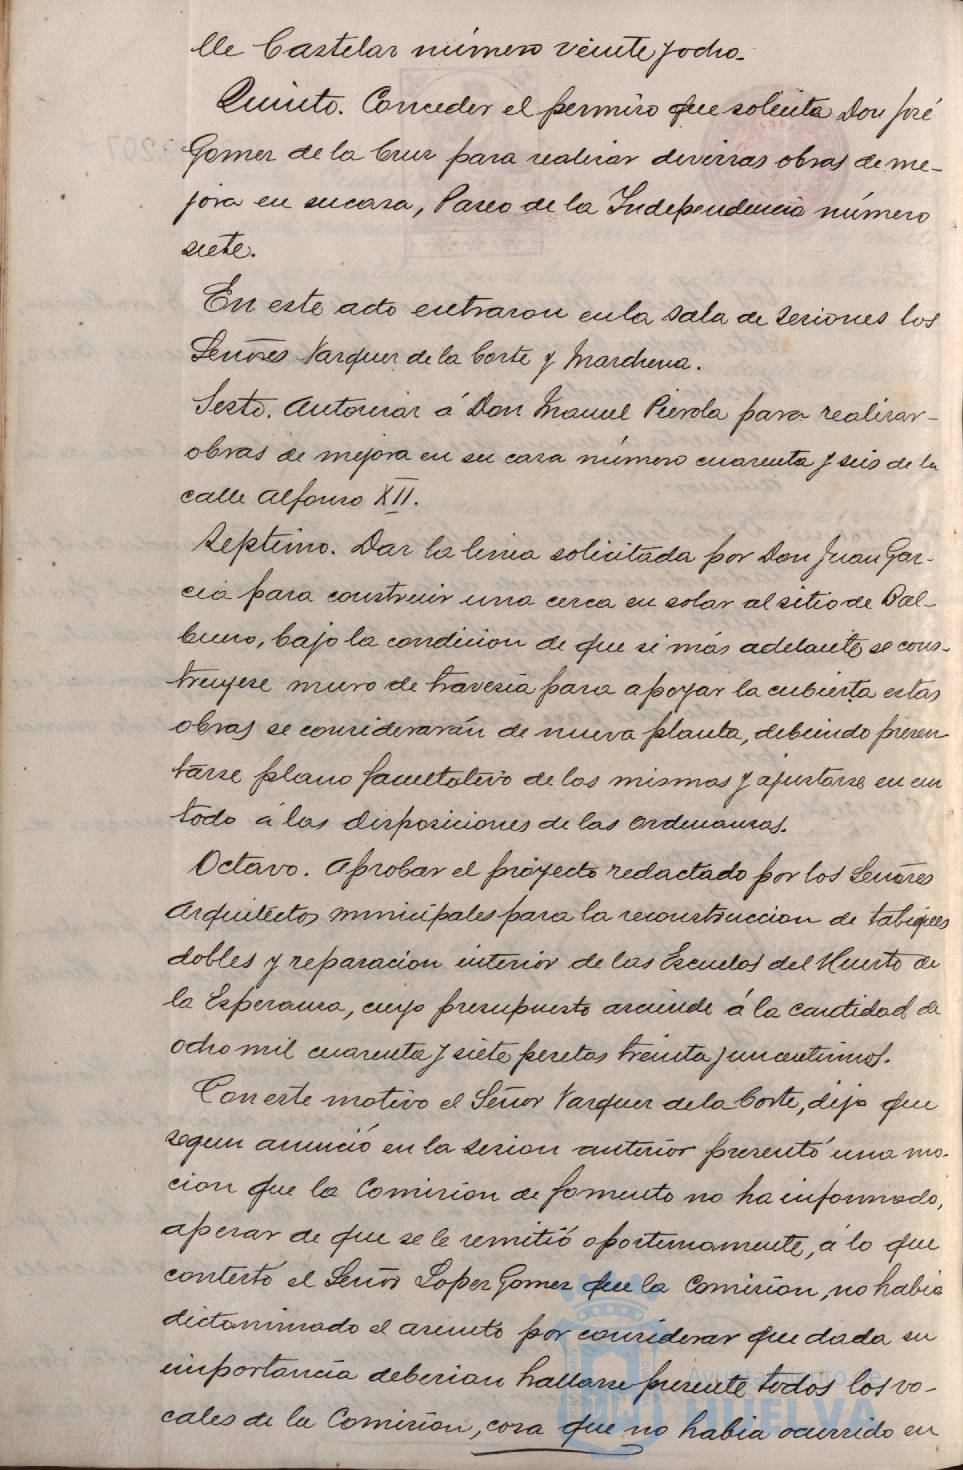 lle Castelar número veinte y ocho.
Quinto. Conceder el permiso que solicita Don José
Gomez de la Cruz para realizar diversas obras de me-
jora en su casa, Paseo de la Independencia número
siete.
En este acto entraron en la sala de sesiones los
Señores Vazquez de la Corte y Marchena.
Sesto. Autorizar á Don Manuel Pierola para realizar
obras de mejora en su casa número cuarenta y seis de la
calle Alfonso XII.
Septimo. Dar la linea solicitada por Don Juan Gar-
cia para construir una cerca en solar al sitio de Bal-
bueno, bajo la condicion de que si más adelante se cons-
truyese muro de travesia para apoyar la cubierta estas
obras se considerarán de nueva planta, debiendo presen
tarse plano facultativo de las mismas y ajustarse en un
todo á las disposiciones de las Ordenanzas.
Octavo. Aprobar el proyecto redactado por los Señores
Arquitectos municipales para la reconstruccion de tabiques
dobles y reparacion interior de las Escuelas del Huerto de
la Esperanza, cuyo presupuesto asciende á la cantidad de
ocho mil cuarenta y siete pesetas treinta y un centimos.
Con este motivo el Señor Vazquez de la Corte, dijo que
segun anunció en la sesion anterior presentó una mo-
cion que la Comision de fomento no ha informado,
apesar de que se le remitió oportunamente, á lo que
contestó el Señor Lopez Gomez que la Comision, no habia
dictaminado el asunto por considerar que dada su
importancia deberian hallarse presente todos los vo-
cales de la Comision, cosa que no habia ocurrido en
Ayuntamiento de
HUELVA